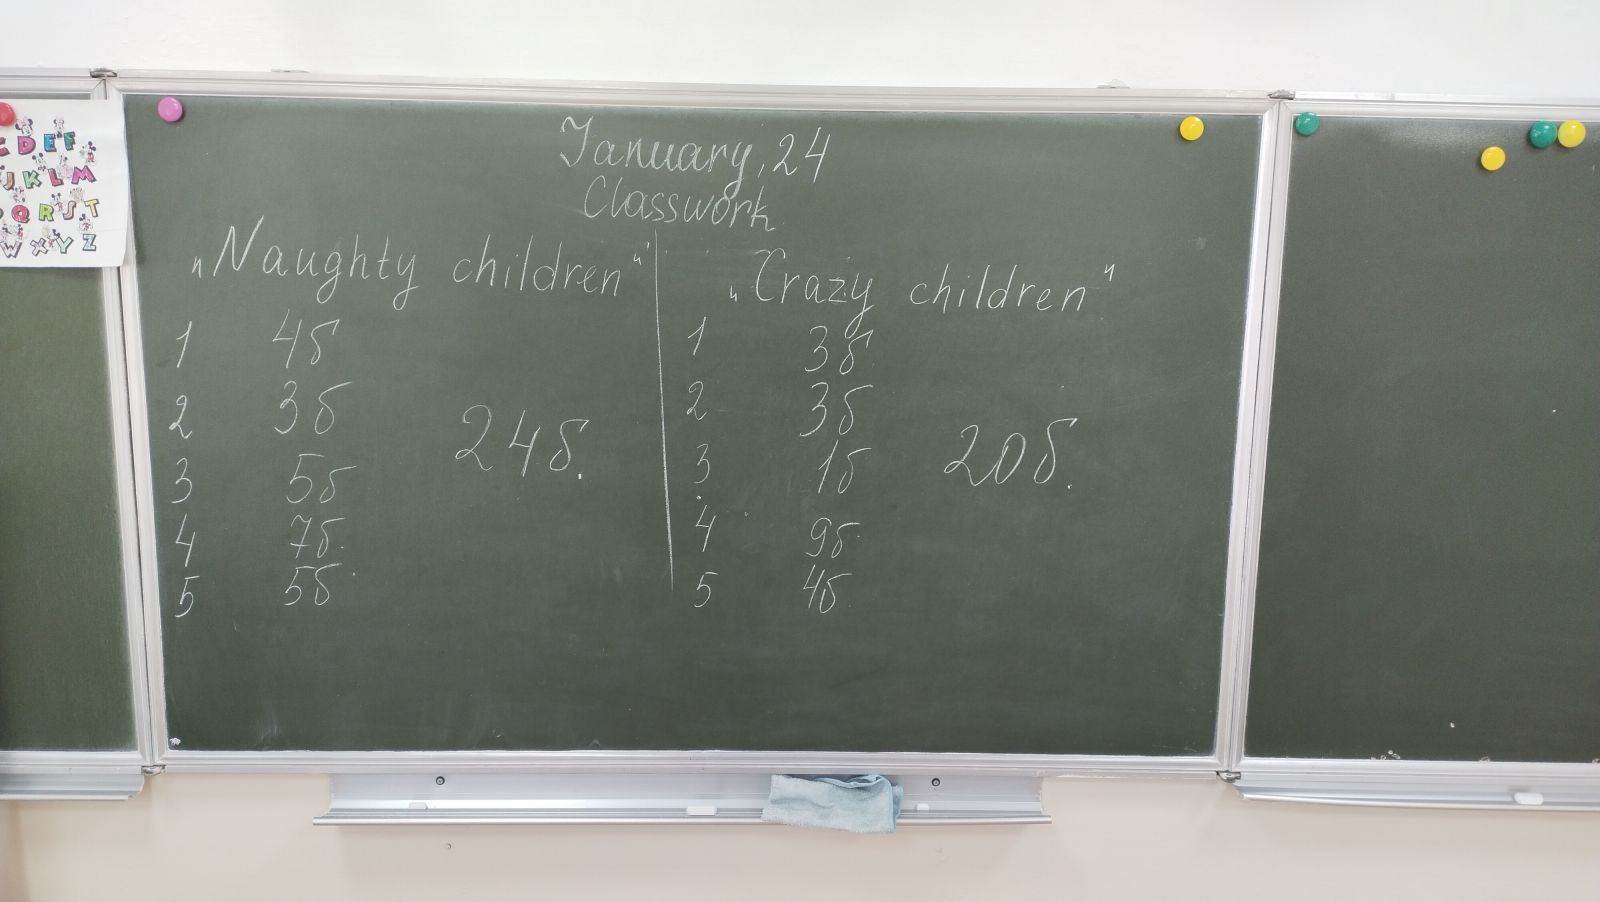 January, 24
Classwork
„Naughty children“
1 4б
2 3б
3 5б
4 7б.
5 5б.
24б.
„Crazy children“
1 3б.
2 3б
3 1б
4 9б.
5 4б.
20б.
C D E F
J K L M
Q R S T
W X Y Z